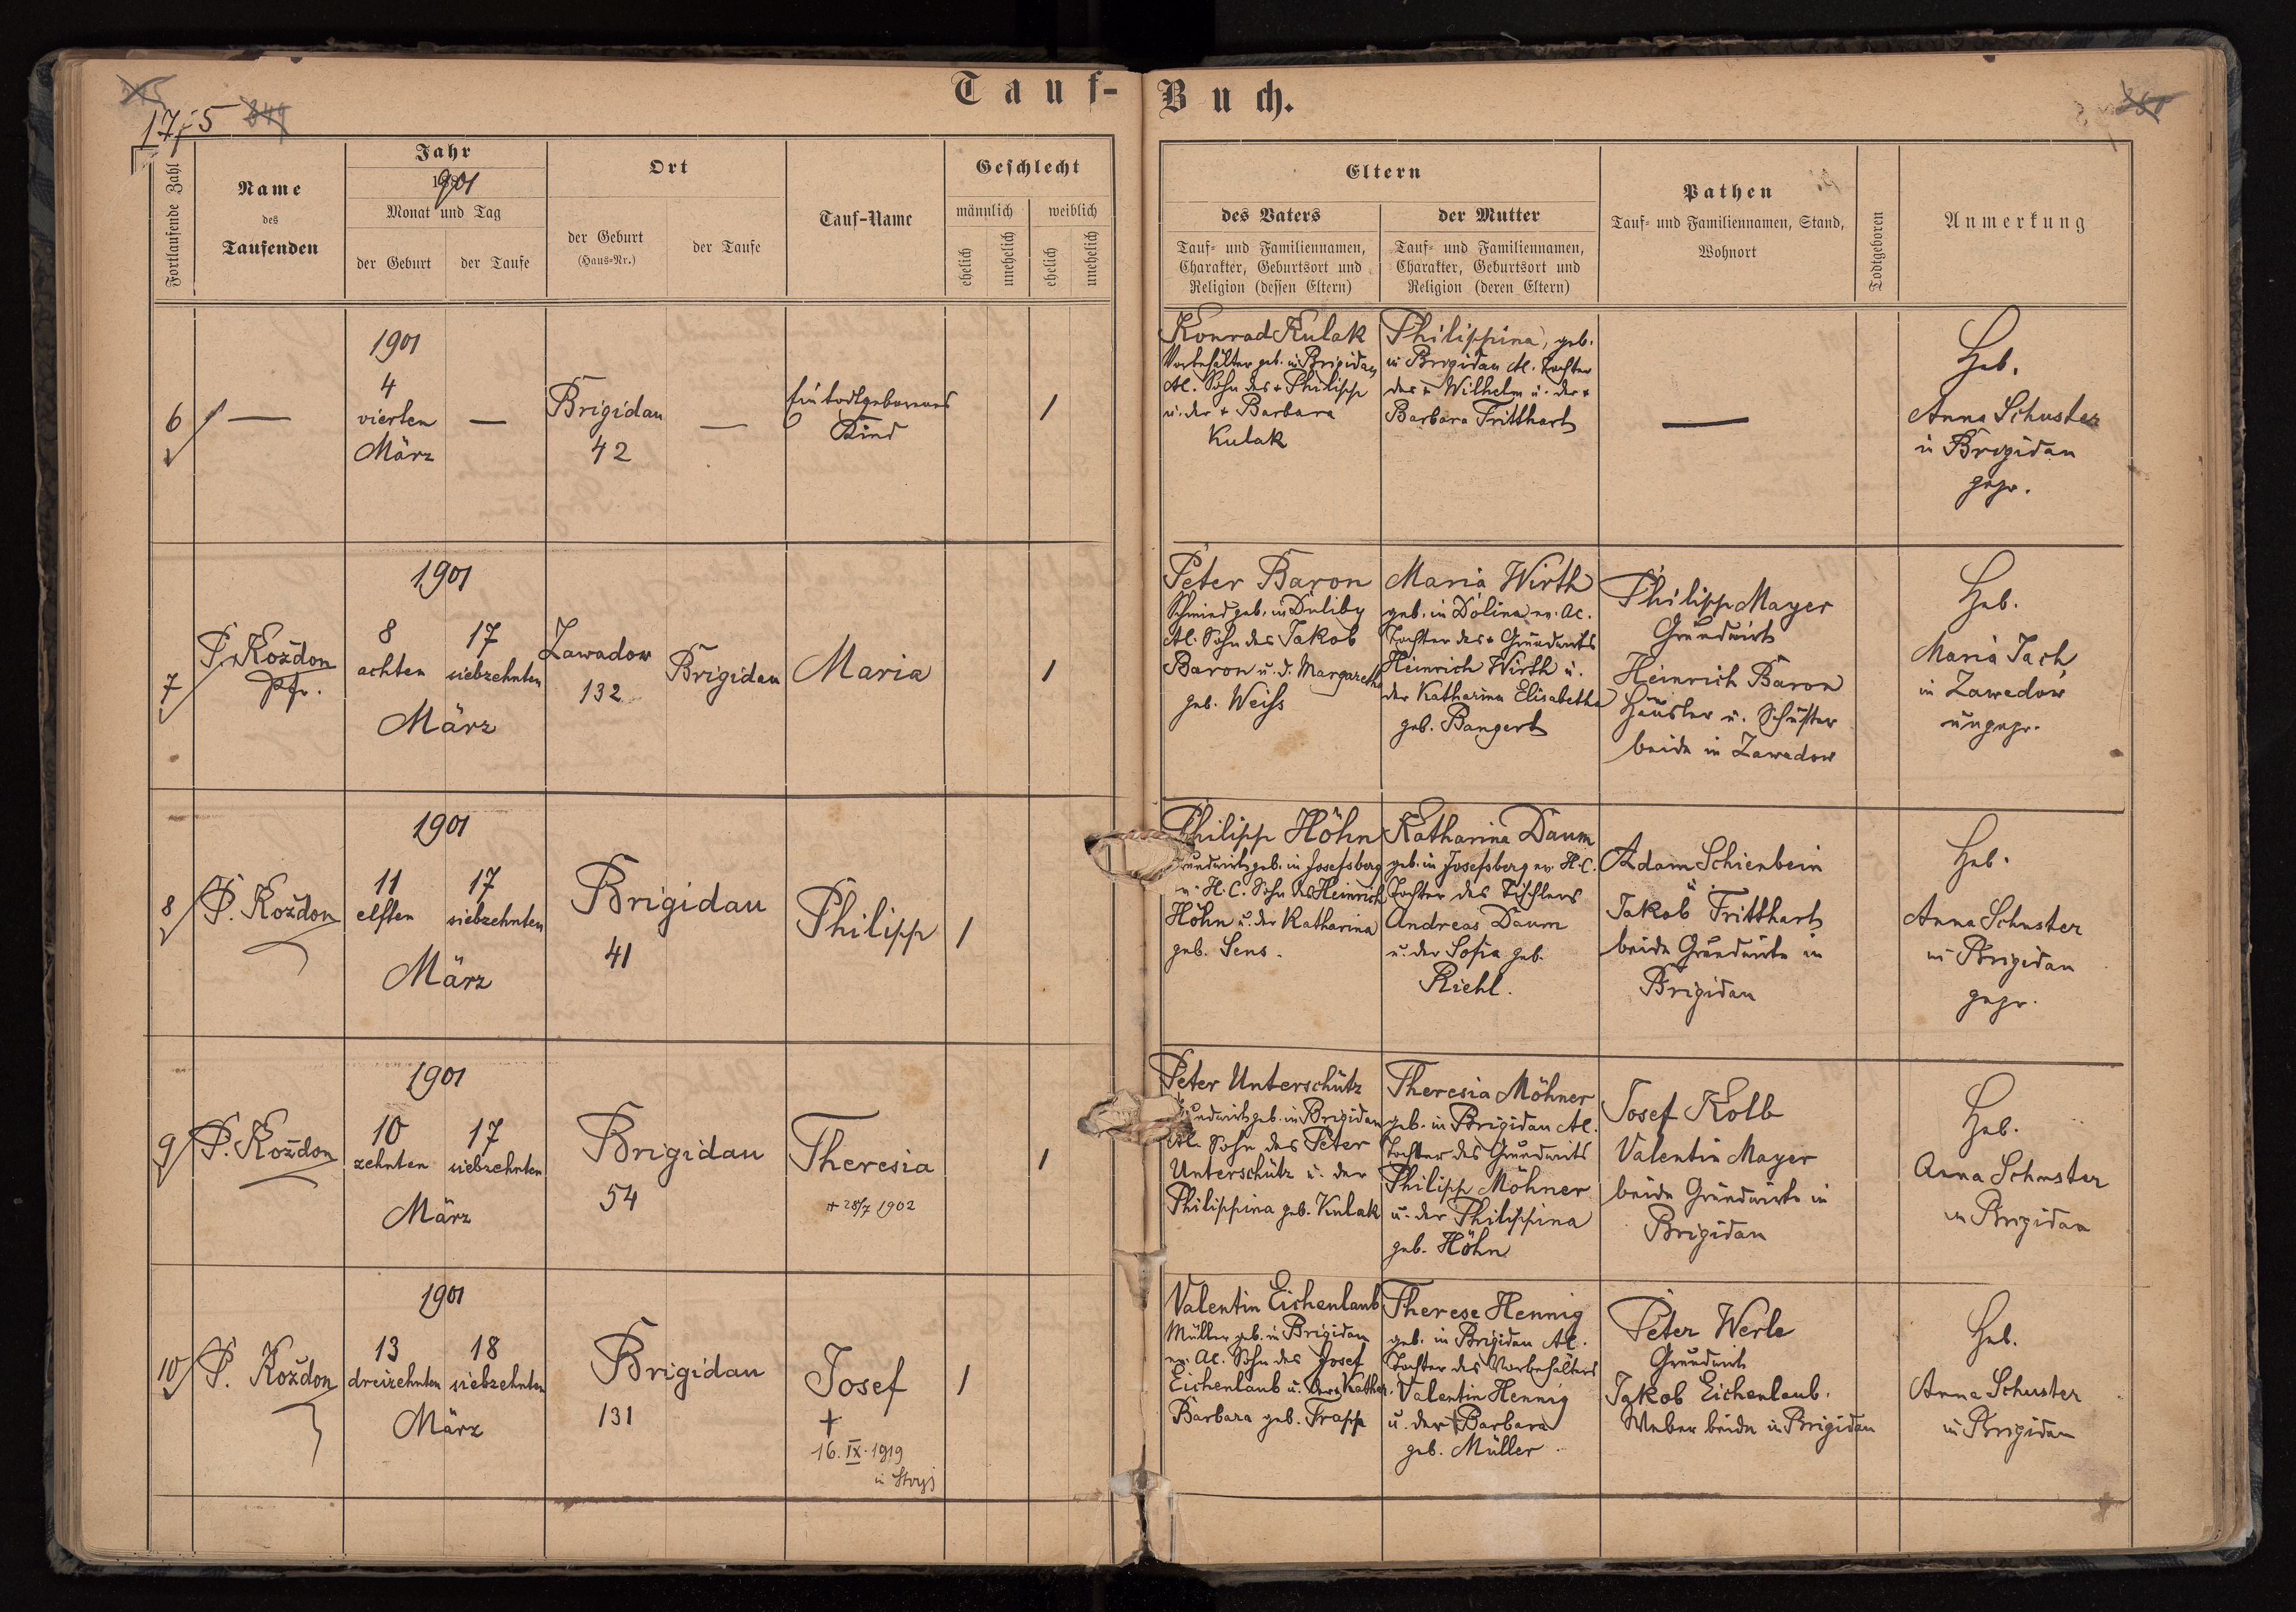 Tauf-Buch.
175
Fortlaufende Zahl
Name
des
Taufenden
Jahr
1901
Monat und Tag
der Geburt
der Taufe
Ort
der Geburt
(Haus-Nr.)
der Taufe
Tauf-Name
Geschlecht
männlich
weiblich
ehelich
unehelich
ehelich
unehelich
Eltern
des Vaters
Tauf- und Familiennamen,
Charakter, Geburtsort und
Religion (dessen Eltern)
der Mutter
Tauf- und Familiennamen,
Charakter, Geburtsort und
Religion (deren Eltern)
Pathen
Tauf- und Familiennamen, Stand,
Wohnort
Todtgeboren
Anmerkung
6
—
1901
4
vierten
März
—
Brigidau
42
—
Ein todtgeborenes
Kind
1
Konrad Kulak
Vorbehälter geb. in Brigidau
AC. Sohn des + Philipp
u. der + Barbara
Kulak
Philippina, geb.
in Brigidau AC. Tochter
des + Wilhelm u. der +
Barbara Fritthart
—
Heb.
Anna Schuster
in Brigidau
gepr.
7
P. Koždon
Pfr.
1901
8
achten
17
siebzehnten
März
Zawadow
132
Brigidau
Maria
1
Peter Baron
Schmied geb. in Duliby
AC. Sohn des Jakob
Baron u. d. Margaretha
geb. Weiss
Maria Wirth
geb. in Dolina ev. AC.
Tochter des + Grundwirts
Heinrich Wirth u.
der Katharina Elisabetha
geb. Bangert
Philipp Mayer
Grundwirt
Heinrich Baron
Häusler u. Schuster
beide in Zawadow
Heb.
Maria Jach
in Zawadów
ungepr.
8
P. Koždon
1901
11
elften
17
siebzehnten
März
Brigidau
41
Philipp
1
Philipp Höhn
Grundwirt geb. in Josefsberg
ev. H.C. Sohn des Heinrich
Höhn u. der Katharina
geb. Sens.
Katharina Daum
geb. in Josefsberg ev. H.C.
Tochter des Tischlers
Andreas Daum
u. der Sofia geb.
Riehl.
Adam Schienbein
Jakob Fritthart
beide Grundwirte in
Brigidau
Heb.
Anna Schuster
in Brigidau
gepr.
9
P. Koždon
1901
10
zehnten
17
siebzehnten
März
Brigidau
54
Theresia
+ 28/7 1902
1
Peter Unterschütz
Grundwirt geb. in Brigidau
AC. Sohn des Peter
Unterschütz u. der
Philippina geb. Kulak
Theresia Möhner
geb. in Brigidau AC.
Tochter des Grundwirts
Philipp Möhner
u. der Philippina
geb. Höhn
Josef Kolb
Valentin Mayer
beide Grundwirte in
Brigidau
Heb.
Anna Schuster
in Brigidau
10
P. Koždon
1901
13
dreizehnten
18
siebzehnten
März
Brigidau
131
Josef
+
16. IX. 1919
in Stryj
1
Valentin Eichenlaub
Müller geb. in Brigidau
ev. AC. Sohn des Josef
Eichenlaub u. der Kathar.
Barbara geb. Trapp
Therese Hennig
geb. in Brigidau AC.
Tochter des Vorbehälters
Valentin Hennig
u. der + Barbara
geb. Müller
Peter Werle
Grundwirt
Jakob Eichenlaub.
Weber beide in Brigidau
Heb.
Anna Schuster
in Brigidau